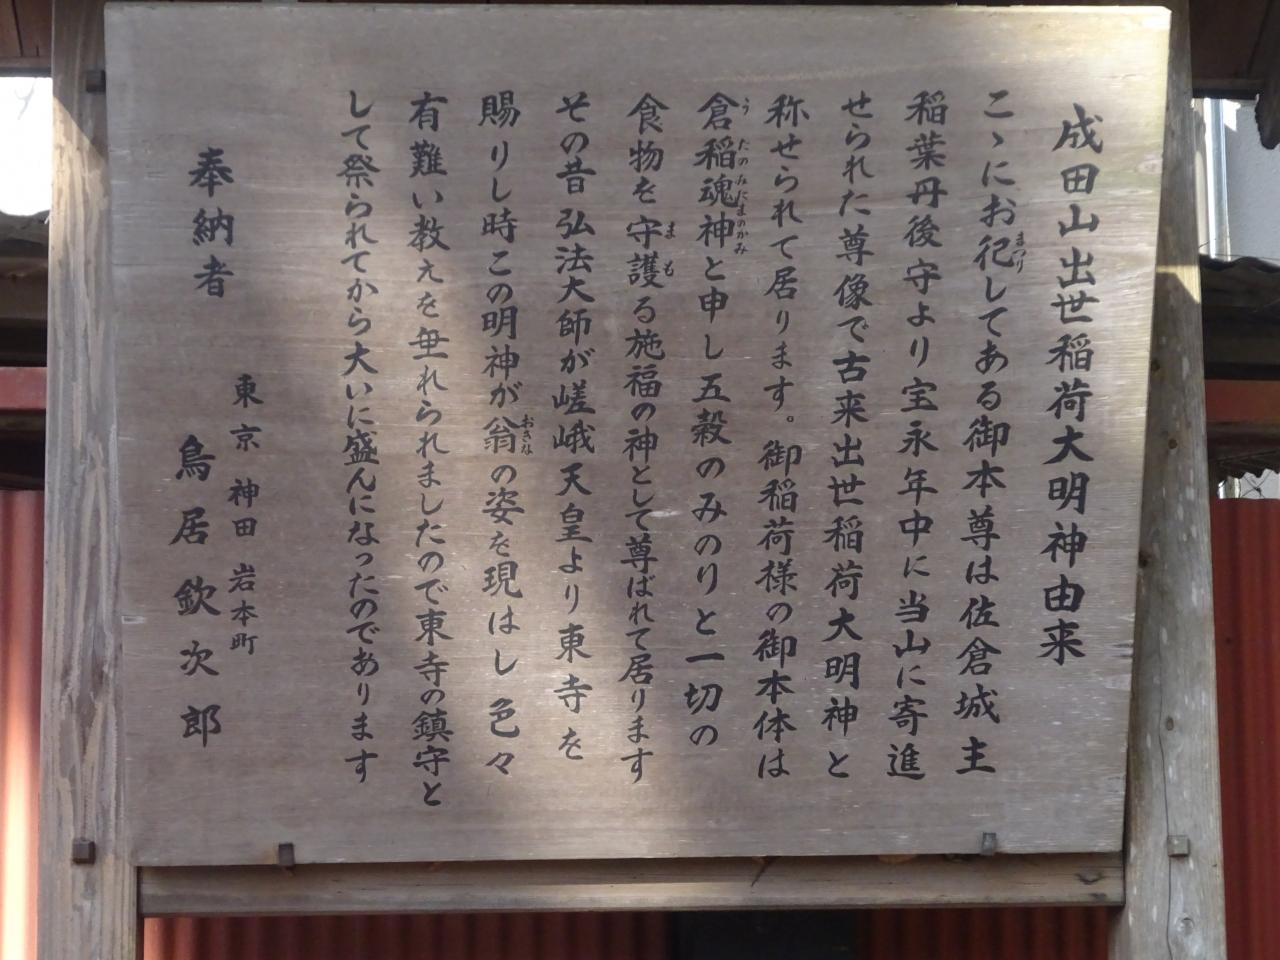 成田山出世稲荷大明神由来
こゝにお祀してある御本尊は佐倉城主
まつり
稲葉丹後守より宝永年中に当山に寄進
せられた尊像で古来出世稲荷大明神と
称せられて居ります。御稲荷様の御本体は
倉稲魂神と申し五穀のみのりと一切の
うたのみたまのかみ
食物を守護る施福の神として尊ばれて居ります
まも
その昔弘法大師が嵯峨天皇より東寺を
賜りし時この明神が翁の姿を現はし色々
おきな
有難い教えを垂れられましたので東寺の鎮守と
して祭られてから大いに盛んになったのであります
奉納者
東京 神田 岩本町
鳥居欽次郎